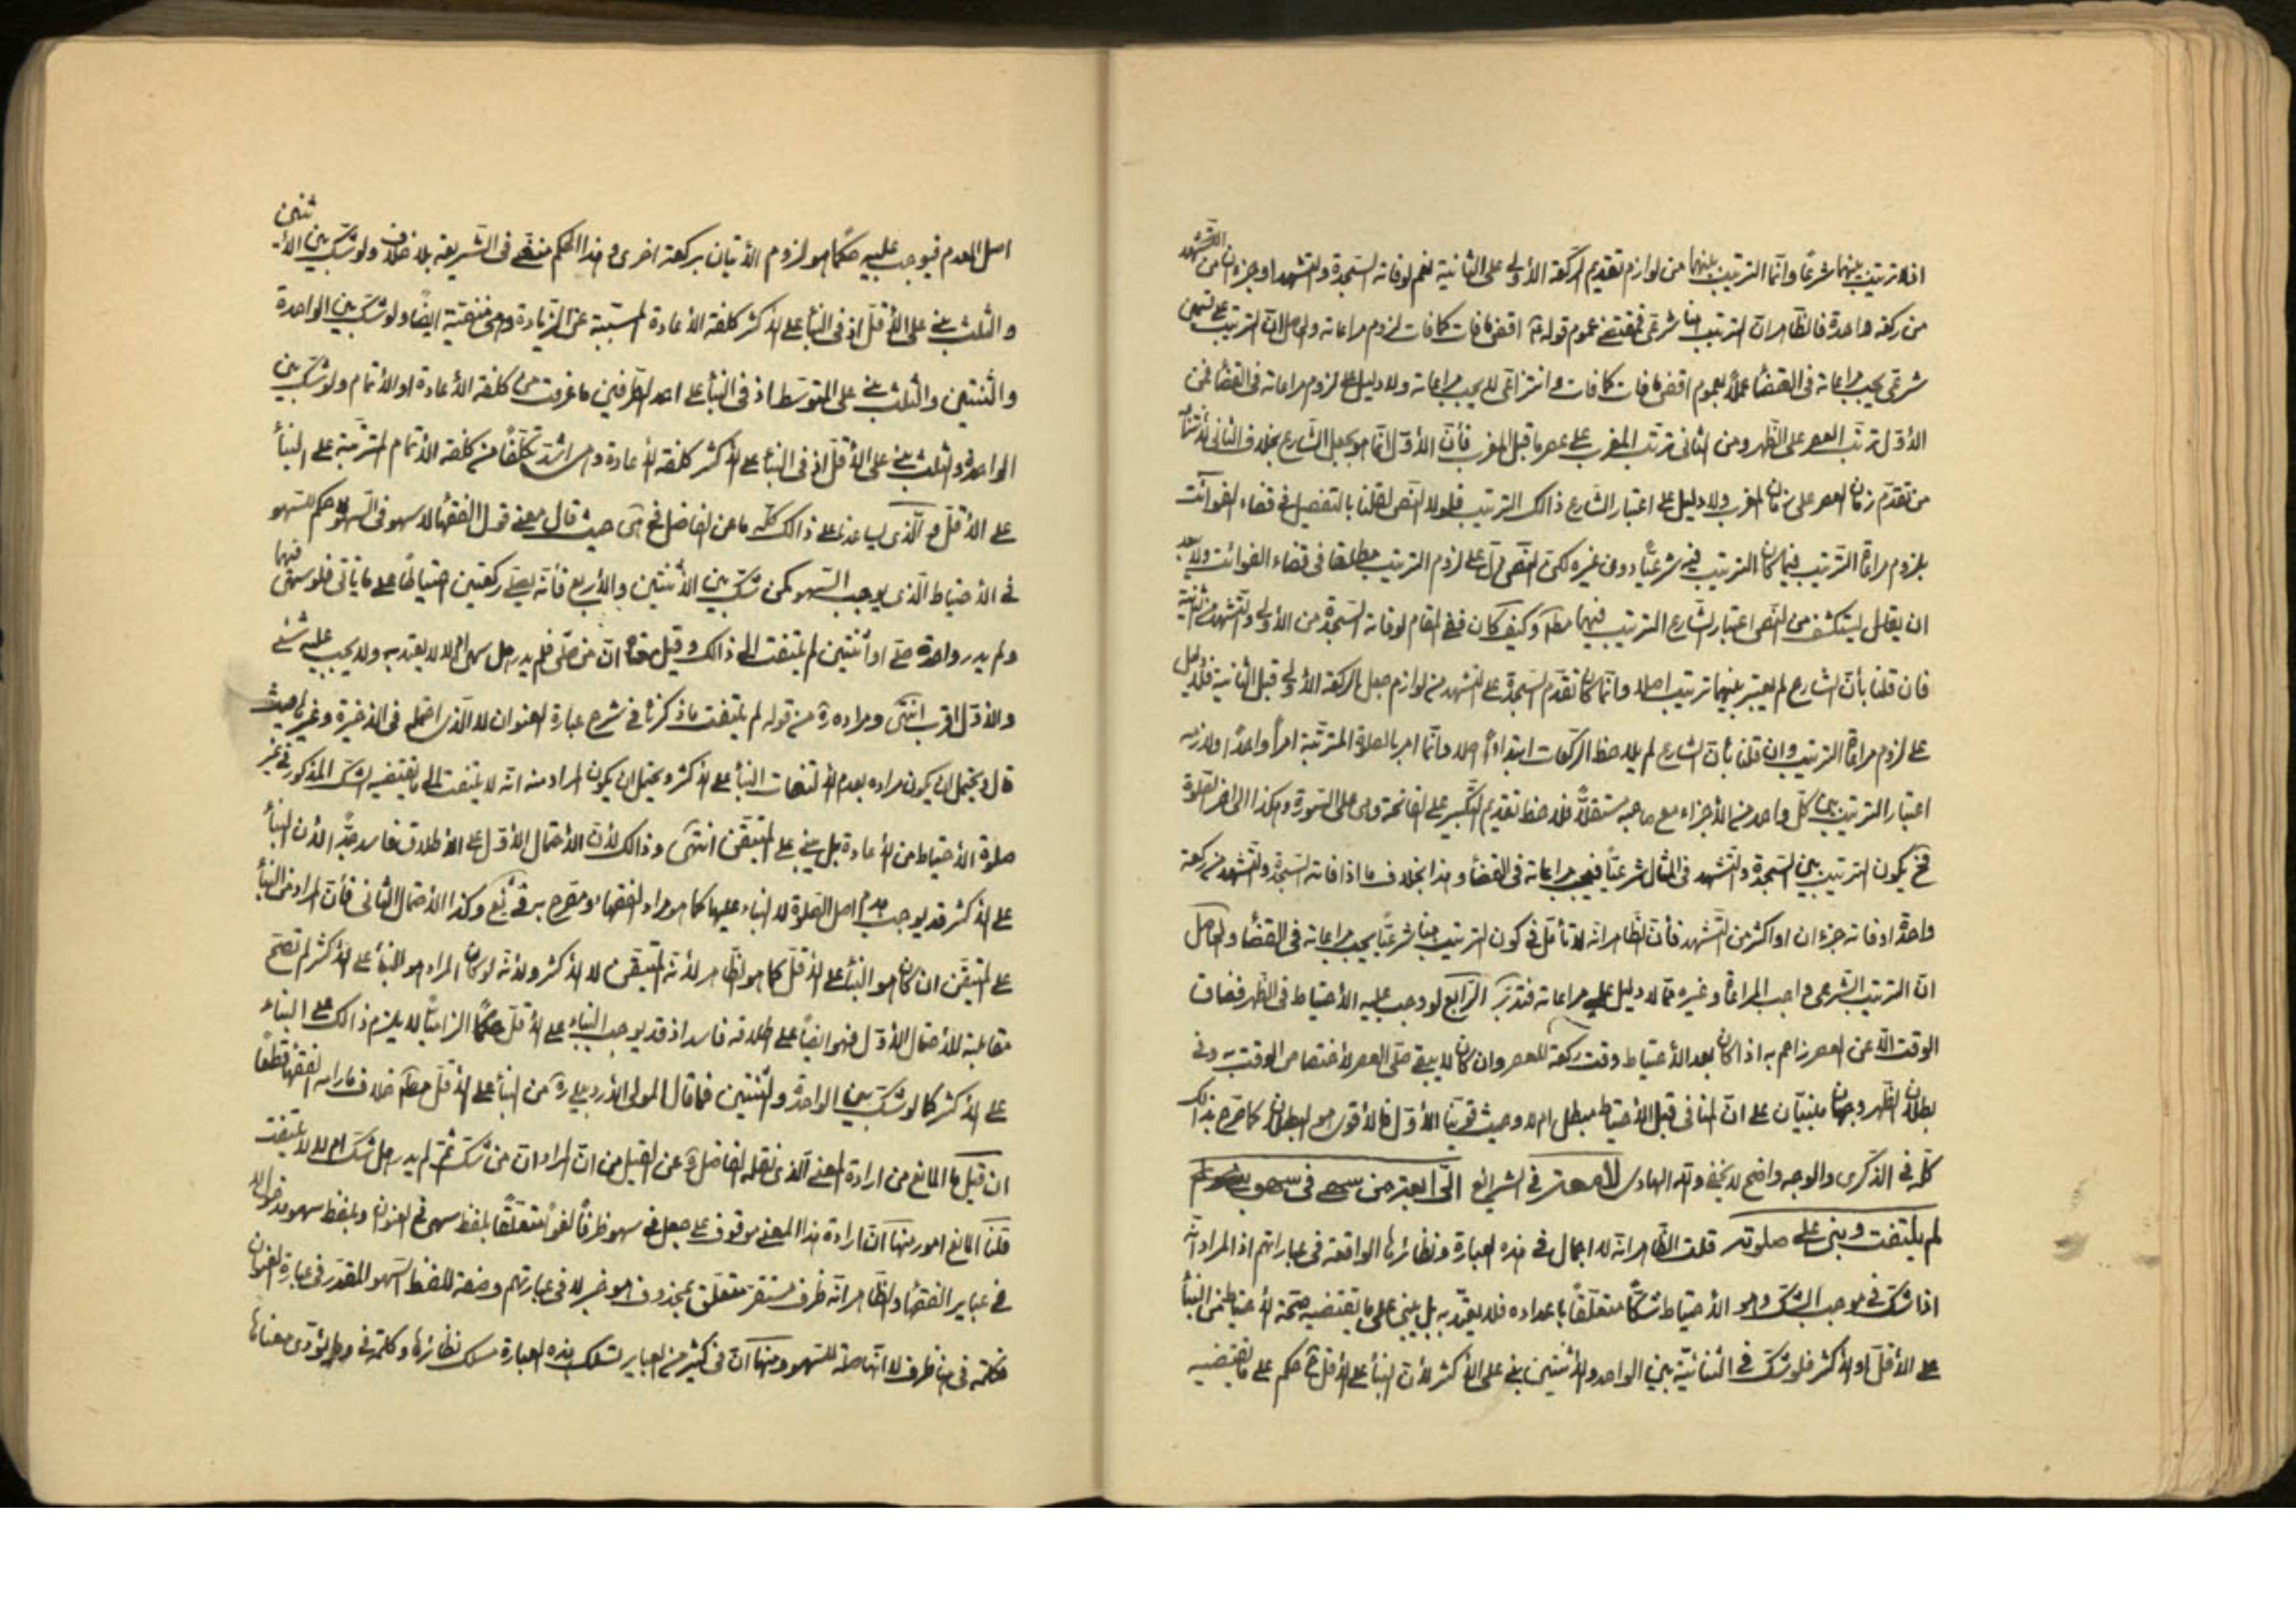 اذ لا ترتيب بينهما شرعًا وانّما الترتيب بينهما من لوازم تقديم الركعة الأولى على الثانية نعم لو فاته السّجدة والتشهد او جزءان من التشهد
من ركعة واحدة فالظّاهر انّ الترتيب هنا شرعي فمقتضى عموم قوله اقض ما فات كما فات لزوم مراعاته والحاصل انّ الترتيب على قسمين
شرعي يجب مراعاته في القضأ عملًا بعموم اقض ما فات كما فات وانتزاعي لا يجب مراعاته ولا دليل على لزوم مراعاته في القضأ فمن
الأوّل ترتّب العصر على الظّهر ومن الثاني ترتّب المغرب على عصر ما قبل المغرب فأنّ الأوّل انّما هو بجعل الشّارع بخلاف الثاني
من تقدّم زمان العصر على زمان المغرب ولا دليل على اعتبار الشّارع ذالك الترتيب فلولا النّص لقلنا بالتفصيل في قضاء الفوائت
بلزوم مراعاة الترتيب فيما كان الترتيب فيه شرعيًّا دون غيره لكن النّص دلّ على لزوم الترتيب مطلقا في قضاء الفوائت
ان يقال يستكشف من النّص اعتبار الشّارع الترتيب فيهما وكيف كان ففي المقام لو فاته السّجدة من الأولى والتّشهد من الثانية
فان قلنا بأنّ الشارع لم يعتبر بينهما ترتيب اصلا وانّما كان تقدّم السّجدة على التشهد من لوازم جعل الركعة الأولى قبل الثانية فلا دليل
على لزوم مراعاة الترتيب وان قلنا بأنّ الشارع لم يلاحظ الركعات ابتداءً اصلا وانّما امر بالصلوة المترتّبة امرًا واحدًا
اعتبار الترتيب بين كلّ واحد من الأجزاء مع صاحبه مستقلًّا فلاحظ تقديم التكبير على الفاتحة وهي على السّورة وهكذا الى اخر الصّلوة
فح يكون الترتيب بين السّجدة والتّشهد في المثال شرعيًّا فيجب مراعاته في القضأ وهذا بخلاف ما اذا فاته السّجدة والتشهد من ركعة
واحدة او فاته جزءان او اكثر من التّشهد فأنّ الظّاهر انّه لا تأمّل في كون الترتيب هنا شرعيًّا يجب مراعاته في القضأ والحاصل
انّ الترتيب الشّرعي واجب المراعاة وغيره ممّا لا دليل على مراعاته فتدبّر الرّابع لو وجب عليه الأحتياط في الظّهر فضاق
الوقت الّا عن العصر زاحم به اذا كان بعد الأحتياط وقت ركعة للعصر وان كان لا يبقى صلّى العصر لأختصاص الوقت به وفي
بطلان الظّهر وجهان مبنيّان على انّ المنافي قبل الأحتياط مبطل ام لا وحيث قوّينا الأوّل فالأقوى هو البطلان كما صرّح بذالك
كلّه في الذّكرى والوجه واضح لا يخفى والله الهادى في الشرايع من سهى في سهو
لم يلتفت وبنى على صلوته قلت الظّاهر انّه لا اجمال في هذه العبارة ونظائرها الواقعة في عباراتهم اذ المراد انّه
اذا شكّ في موجب الشكّ وهو الأحتياط شكًّا متعلّقًا باعداده فلا يعتدّ به بل يبنى على ما يقتضيه صحّة الأحتياط من البنأ
على الأقلّ او الأكثر فلو شكّ في الثنائيّة بين الواحد والأثنتين بنى على الأكثر لأنّ البنأ على الأقلّ حكم على ما يقتضيه
اصل العدم فيوجب عليه حكمًا هو لزوم الأتيان بركعة اخرى وهذا الحكم منفي في الشّريعة بلا خلاف ولو شكّ بين الأثنين
والثلث بنى على الأقلّ اذ في البنأ على الأكثر كلفة الأعادة المسبّبة عن الزّيادة وهي منفيّة ايضًا ولو شكّ بين الواحدة
والثنتين والثلث بنى على المتوسّط اذ في البنأ على احد الطّرفين ما عرفت من كلفة الأعادة او الأتمام ولو شكّ بين
الواحدة والثلث بنى على الأقلّ اذ في البنأ على الأكثر كلفة الأعادة وهي اشدّ تكلّفًا من كلفة الأتمام المترتّبة على البنأ
على الأقلّ والّذي يساعدنا على ذالك كلّه ما عن الفاضل حيث قال معنى قول الفقهأ لا سهو في السّهو لا حكم للسّهو
في الأحتياط الّذي يوجب السّهو كمن شكّ بين الأثنتين والأربع فأنّه يصلّي ركعتين احتياطًا على ما يأتي فلو سهى فيهما
ولم يدر واحدة صلّى او اثنتين لم يلتفت الى ذالك وقيل معناه انّ من صلّى فلم يدر هل سهى ام لا لا يعتد به ولا يجب عليه شئ
والأوّل اقرب انتهى ومراده من قوله لم يلتفت ما ذكرنا في شرح عبارة العنوان لا الّذي احتمله في الذخيرة وغيرها حيث
قال ويحتمل ان يكون مراده بعدم الألتفات البنأ على الأكثر ويحتمل ان يكون المراد منه انّه لا يلتفت الى ما يقتضيه الشكّ المذكور في غير
صلوة الأحتياط من الأعادة بل يبني على المتيقّن انتهى وذالك لأنّ الأحتمال الأوّل على الأطلاق فاسد جدًّا لأن البنأ
على الأكثر قد يوجب هدم اصل الصّلوة لا البناء عليها كما هو مراد الفقهاء وكذا الأحتمال الثاني فأنّ المراد من البنأ
على المتيقّن ان كان هو البنأ على الأقلّ كما هو الظّاهر لأنّه المتيقّن لا الأكثر ولأنّه لو كان المراد هو البنأ على الأكثر لم تصحّ
مقابلته للأحتمال الأوّل فهو ايضًا على اطلاقه فاسد اذ قد يوجب البناء على الأقلّ حكمًا الزاميًّا لا يلزم ذالك على البناء
على الأكثر كما لو شكّ بين الواحدة والثنتين فما قال المولى الأردبيلي ره من البنأ على الأقلّ خلاف مرام الفقهأ قطعًا
ان قيل ما المانع من ارادة المعنى الّذي نقله الفاضل عن القيل من انّ المراد انّ من شكّ ثمّ لم يدر هل شكّ ام لا لا يلتفت
قلنا المانع امور منها انّ ارادة هذا المعنى موقوف على جعل في سهو ظرفًا لغوًا متعلّقًا بلفظ سهى في العنوان وبلفظ سهو
في عباير الفقهأ والظّاهر انّه ظرف مستقر متعلّق بمحذوف هو خبر لا في عبارتهم وصفة للفظ السّهو المقدّر في عبارة العنوان
فكلمة في هنا ظرف لا انّها صلة للسّهو ومنها انّ في كثير من العباير تسلك هذه العبارة مسلك نظائرها وكلمة في وهل تؤدّى معناها